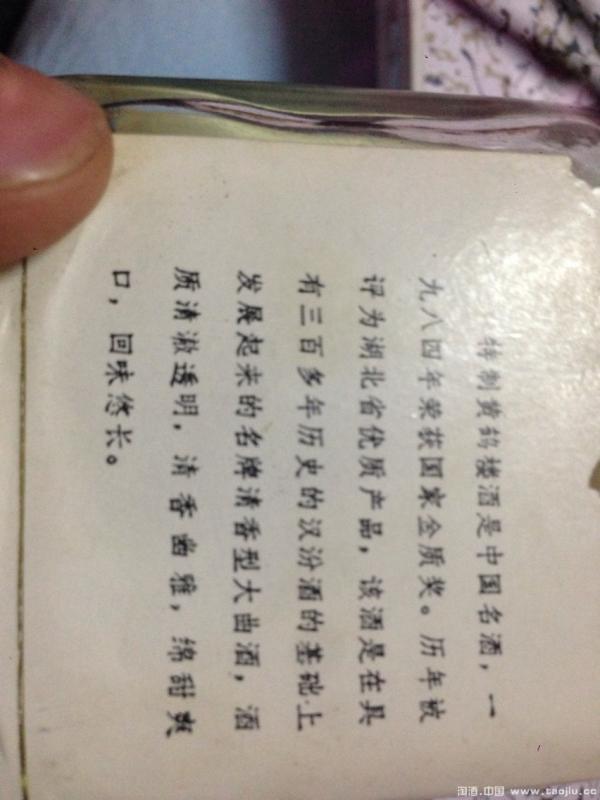 特制黄鹤楼酒是中国名酒，一
九八四年荣获国家金质奖。历年被
评为湖北省优质产品，该酒是在具
有三百多年历史的汉汾酒的基础上
发展起来的名牌清香型大曲酒，酒
质清澈透明，清香幽雅，绵甜爽
口，回味悠长。
淘酒.中国 www.taojiu.cc